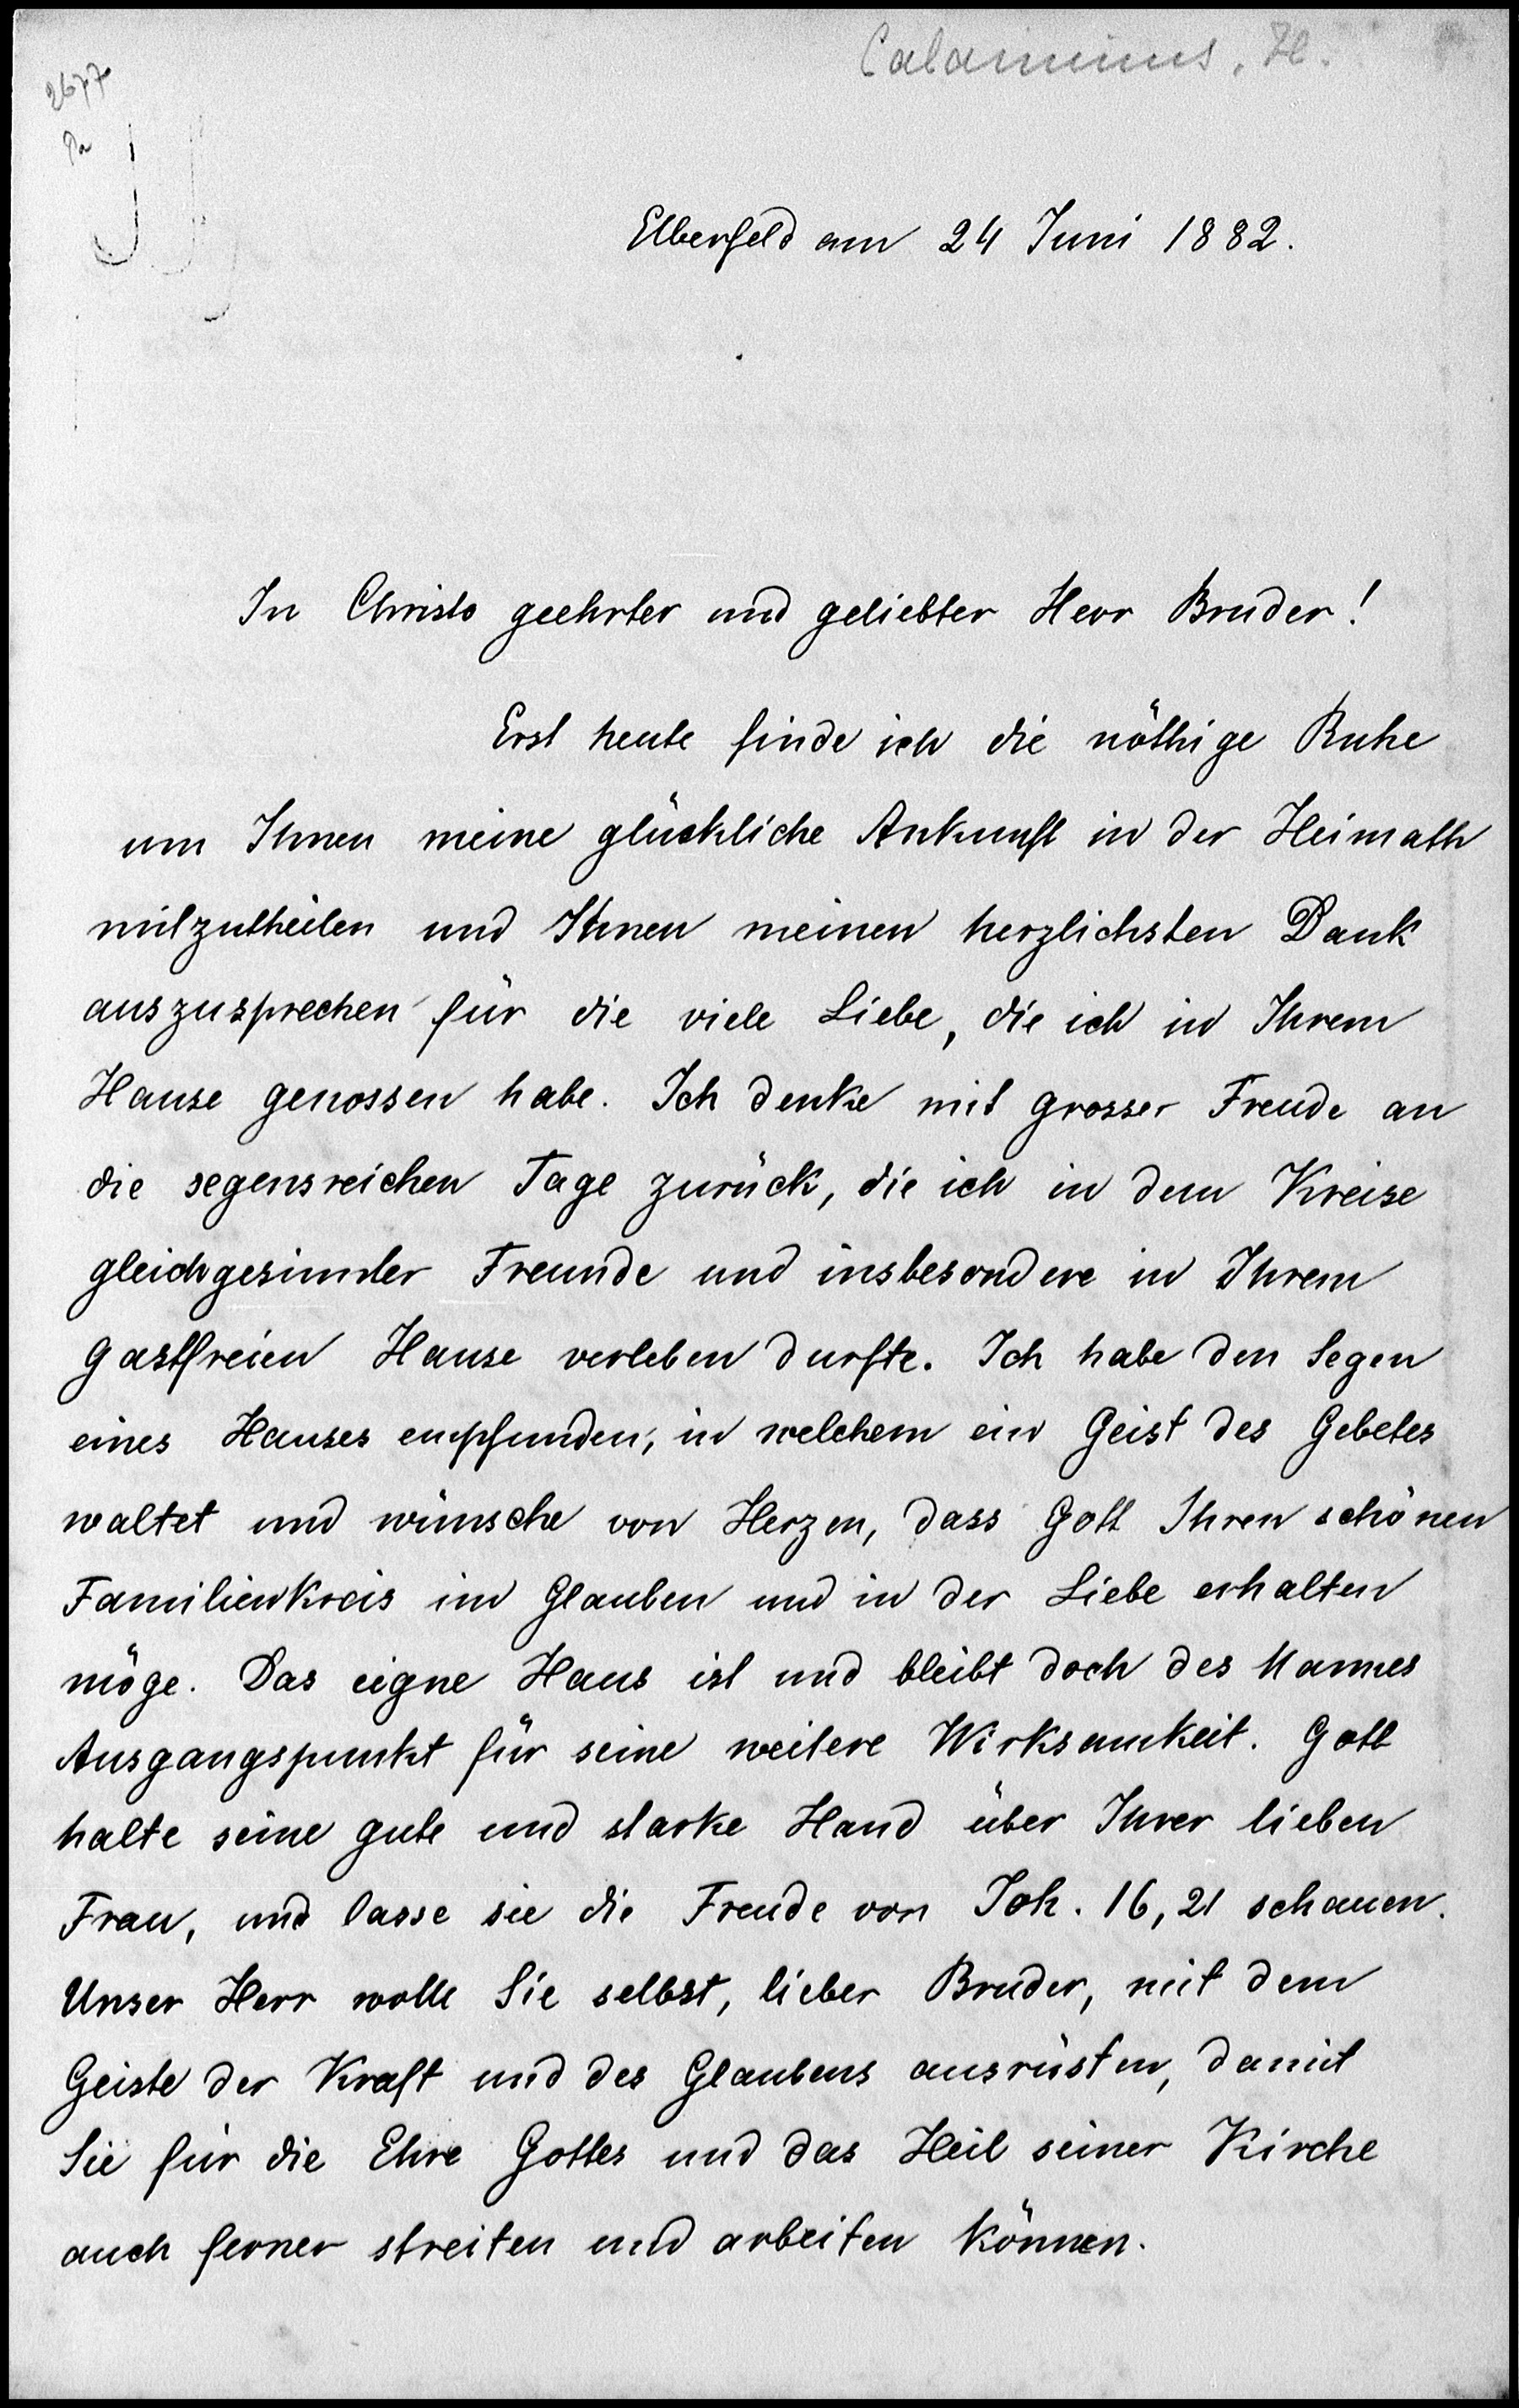 Calaminus, H.
2677
Elberfeld am 24 Juni 1882.
In Christo geehrter und geliebter Herr Bruder!
Erst heute finde ich die nöthige Ruhe
um Ihnen meine glückliche Ankunft in der Heimath
mitzutheilen und Ihnen meinen herzlichsten Dank
auszusprechen für die viele Liebe, die ich in Ihrem
Hause genossen habe. Ich denke mit grosser Freude an
die segensreichen Tage zurück, die ich in dem Kreise
gleichgesinnter Freunde und insbesondere in Ihrem
gastfreien Hause verleben durfte. Ich habe den Segen
eines Hauses empfunden, in welchem ein Geist des Gebetes
waltet und wünsche von Herzen, dass Gott Ihren schönen
Familienkreis im Glauben und in der Liebe erhalten
möge. Das eigne Haus ist und bleibt doch des Mannes
Ausgangspunkt für seine weitere Wirksamkeit. Gott
halte seine gute und starke Hand über Ihrer lieben
Frau, und lasse sie die Freude von Joh. 16, 21 schauen.
Unser Herr wolle Sie selbst, lieber Bruder, mit dem
Geiste der Kraft und des Glaubens ausrüsten, damit
Sie für die Ehre Gottes und das Heil seiner Kirche
auch ferner streiten und arbeiten können.